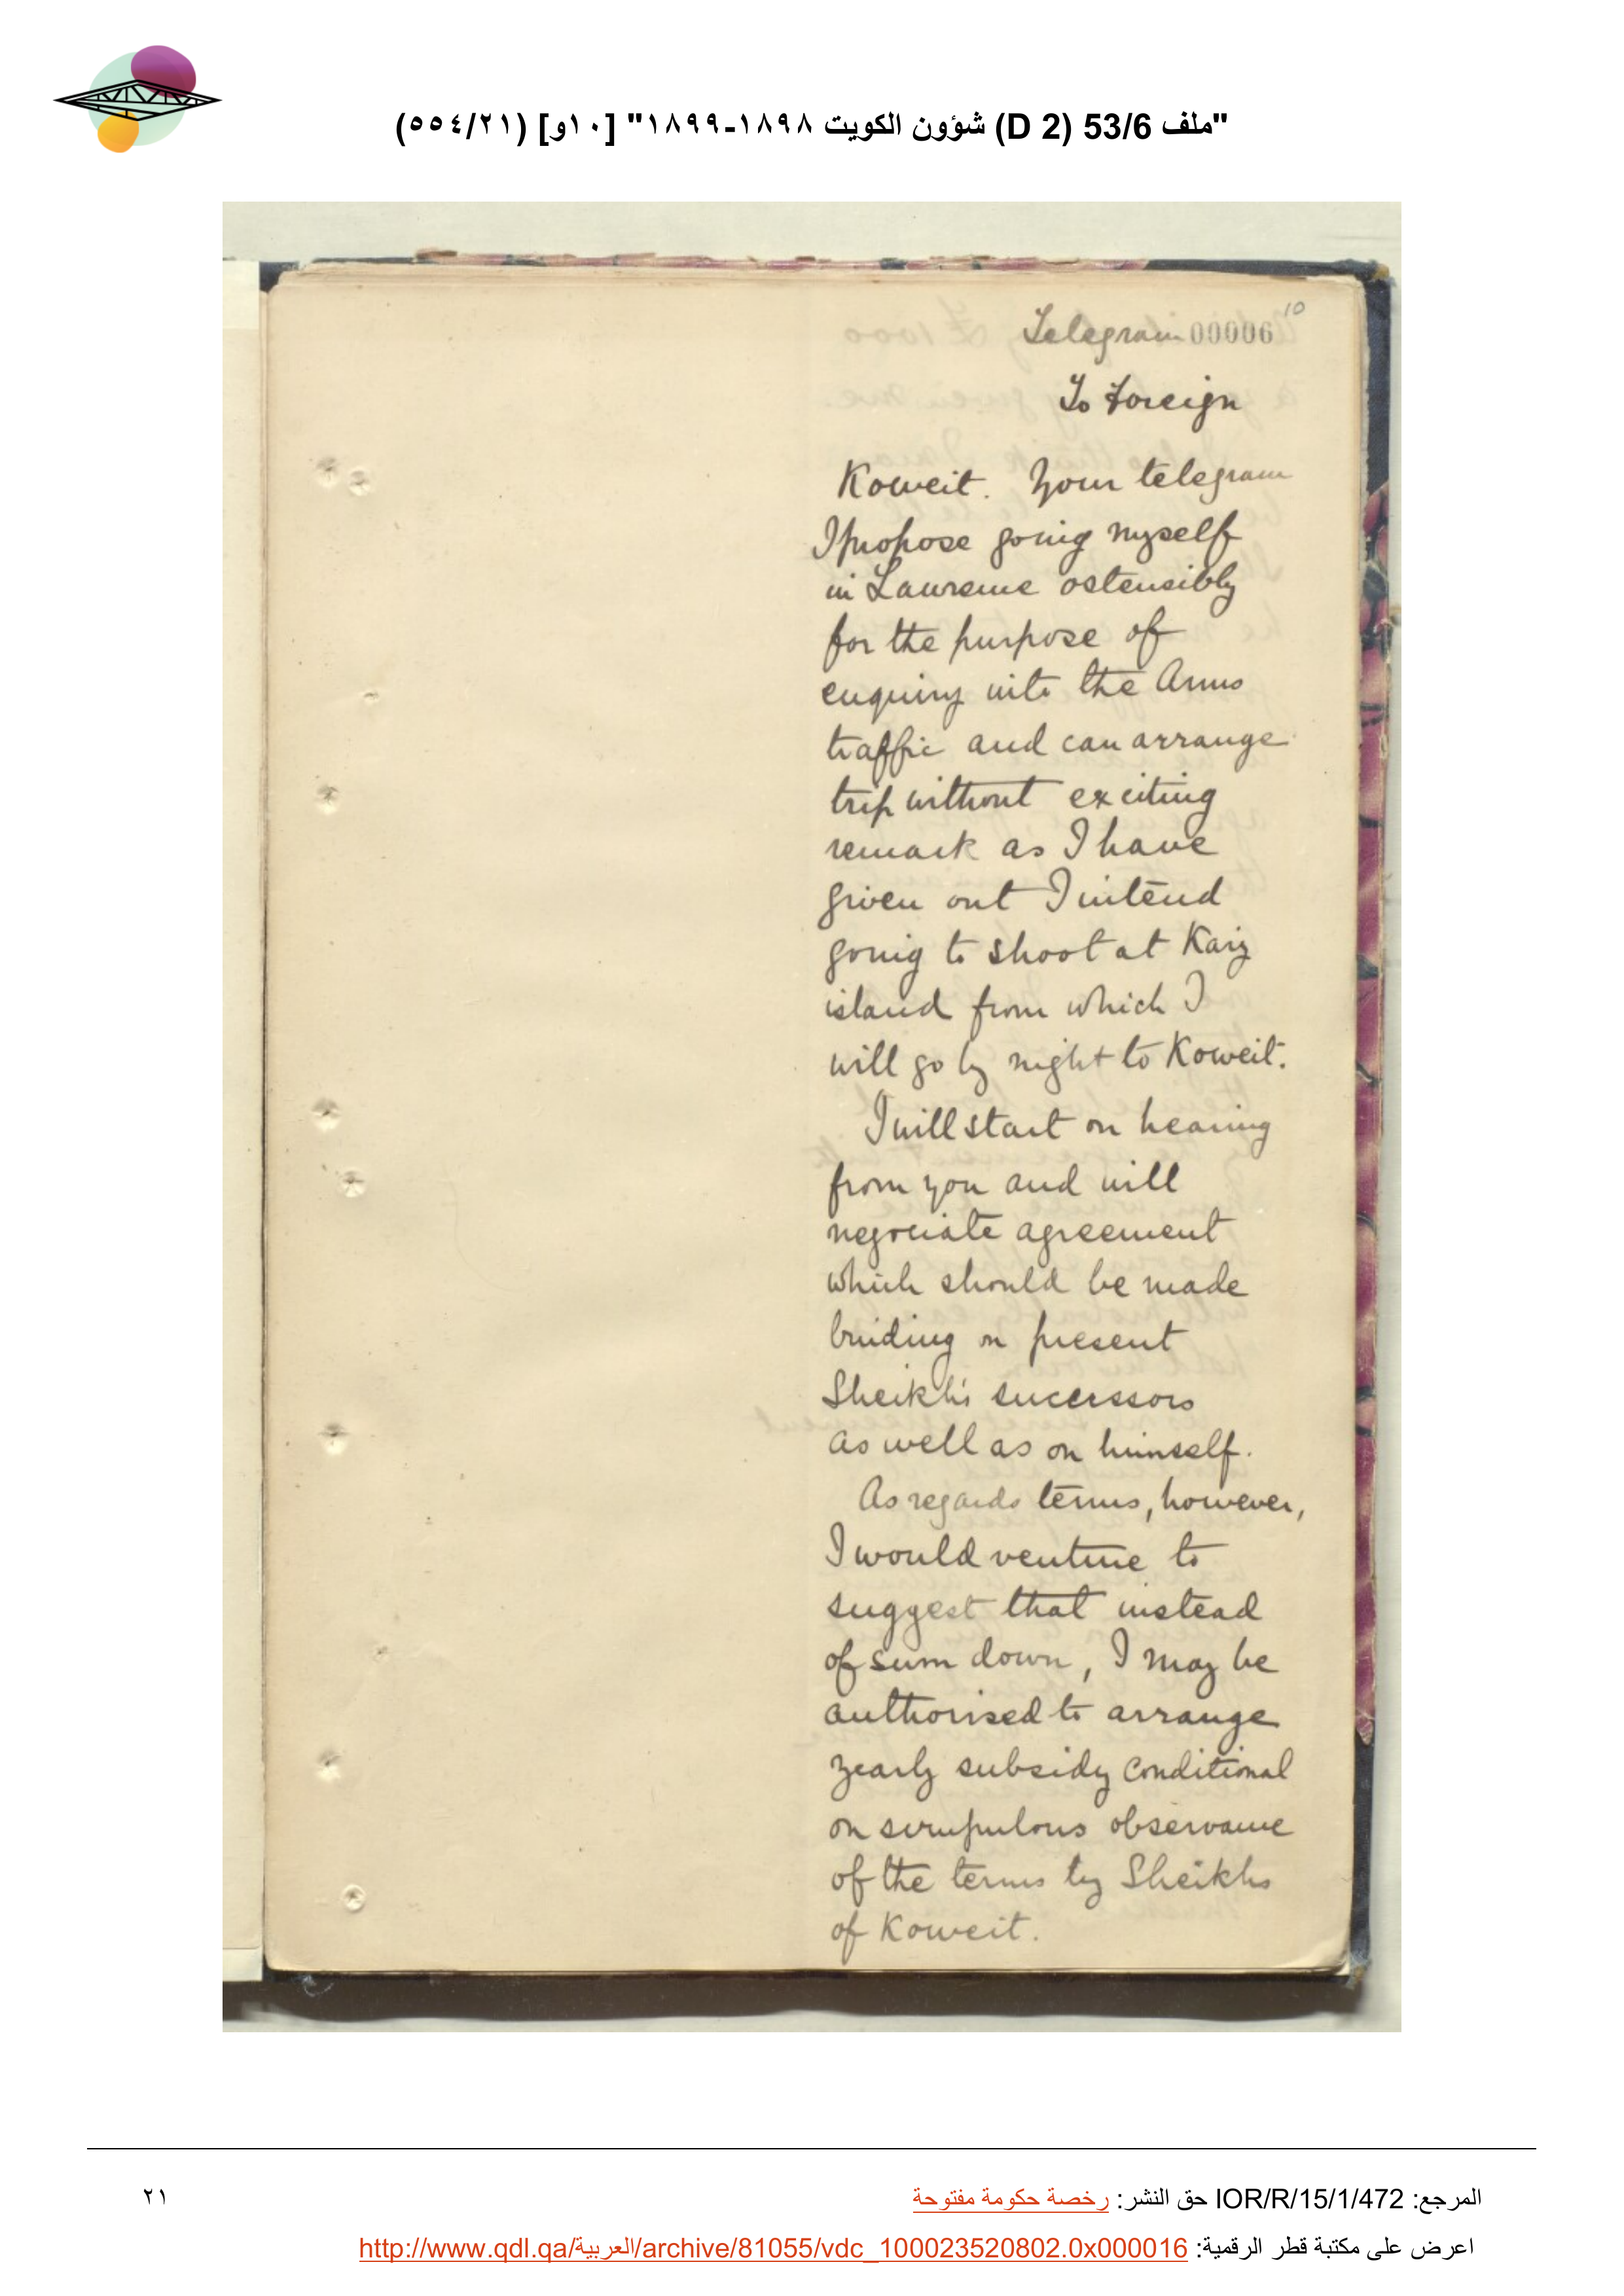 "ملف 53/6 (D 2) شؤون الكويت ١٨٩٨-١٨٩٩" [١٠و] (٥٥٤/٢١)
10
Telegram 00006
To Foreign
Koweit. Your telegram
I propose going myself
in Lawrence ostensibly
for the purpose of
enquiry into the Arms
traffic and can arrange
trip without exciting
remark as I have
given out I intend
going to shoot at Karg
island from which I
will go by night to Koweit.
I will start on hearing
from you and will
negociate agreement
which should be made
binding on present
Sheikh's successors
as well as on himself.
As regards terms, however,
I would venture to
suggest that instead
of sum down, I may be
authorised to arrange
yearly subsidy conditional
on scrupulous observance
of the terms by Sheikhs
of Koweit.
المرجع: IOR/R/15/1/472 حق النشر: رخصة حكومة مفتوحة
٢١
اعرض على مكتبة قطر الرقمية: http://www.qdl.qa/العربية/archive/81055/vdc_100023520802.0x000016